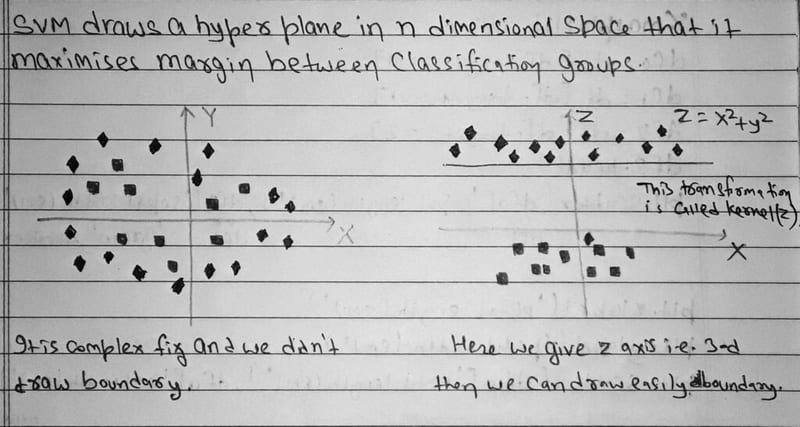 SVM draws a hyper plane in n dimensional space that it
maximises margin between classification groups.
Y
X
Z
Z = x²+y²
This transformation
is called kernel(z).
X
It is complex fig and we didn't
draw boundary.
Here we give z axis i.e. 3-d
then we can draw easily boundary.